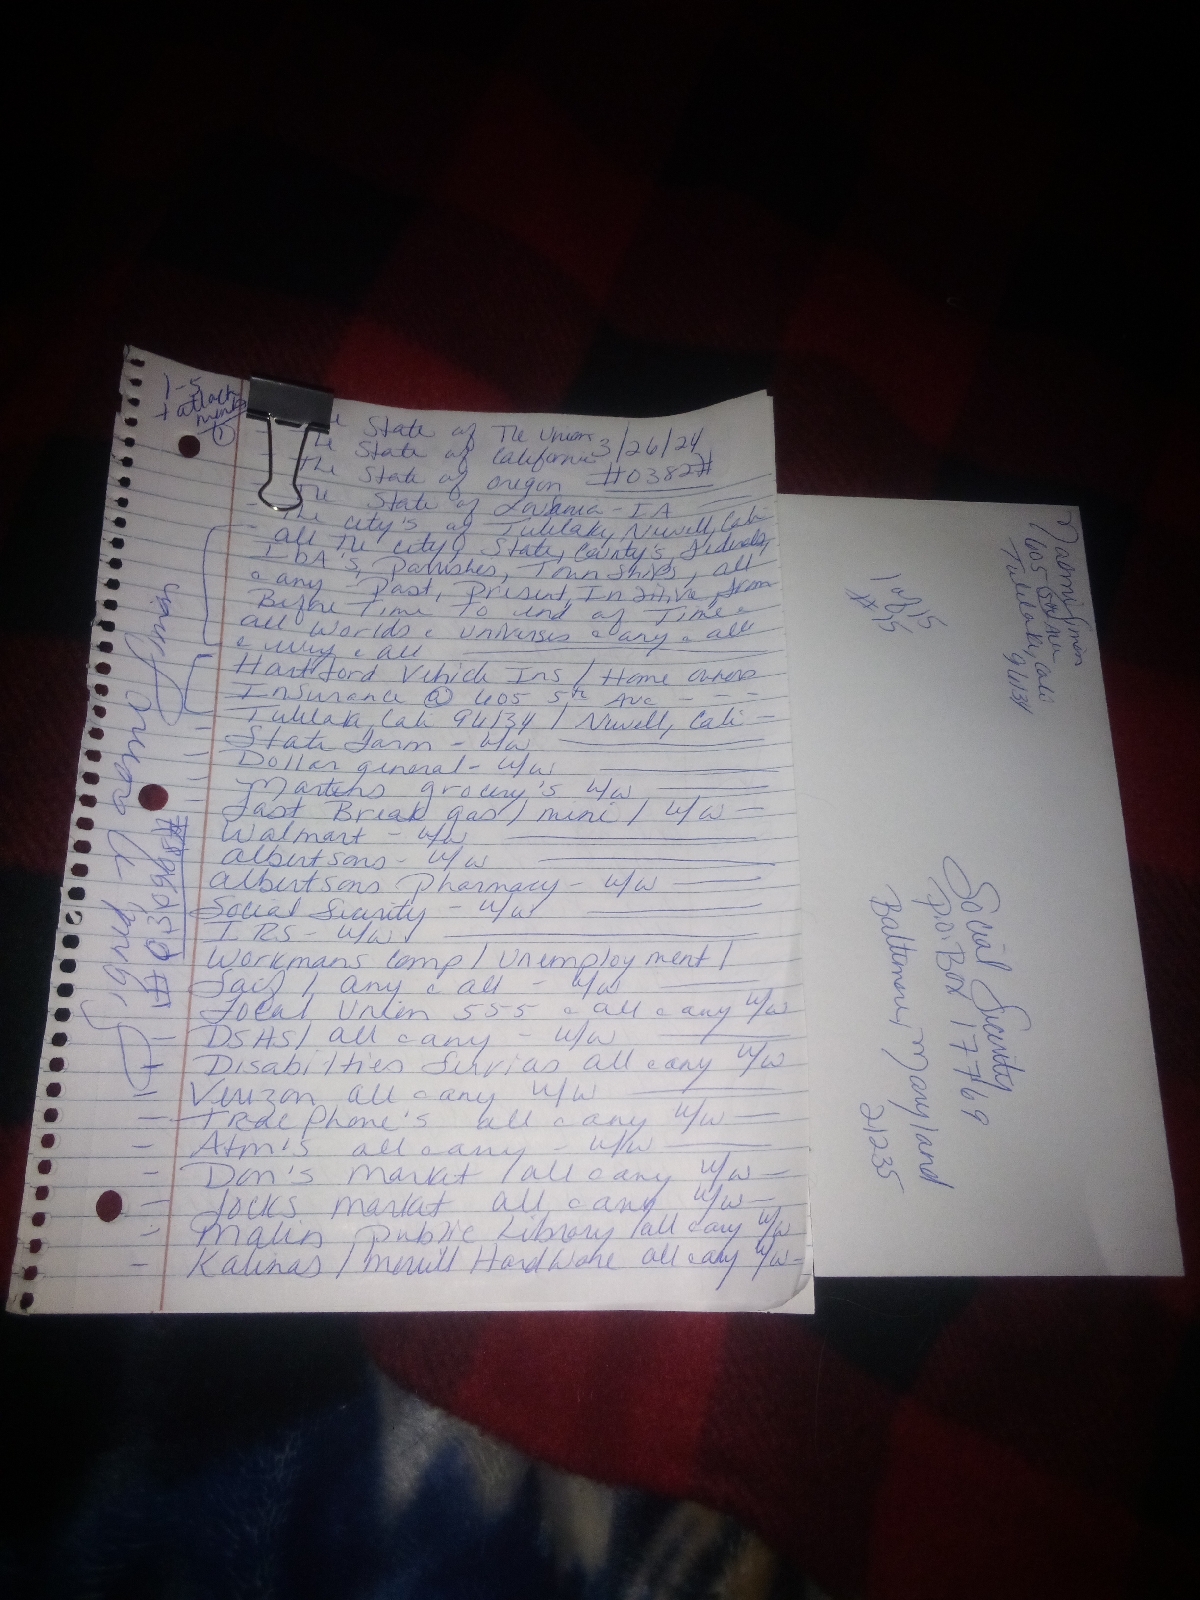 1-5
+ attach
ments
①
The State of The Union 3/26/24
- The State of California
- The State of Oregon #0382#
- The State of
- The city's of Tulelake, Newell, Cali
all The city, State, County's, Federals,
Parishes, Townships, all
any Past, Present, from
Before Time To end of Time
all worlds universes any all
all
Hartford Vehicle Ins / Home owners
Insurance @ 605 5th Ave - - -
Tulelake, Cali 96134 / Newell, Cali -
State Farm - w/w
Dollar general - w/w
grocery's w/w
Fast Break gas / mini / w/w
Walmart - w/w
Albertsons - w/w
Albertsons Pharmacy - w/w
Social Security - w/w
IRS - w/w
Workmans Comp / Unemployment /
any all - w/w
Local Union 555 all any w/w
DSHS / all any - w/w
Disabilities all any w/w
Verizon all any w/w
Trac Phone's all any w/w
- Atm's all any - w/w
- Don's Market / all any w/w -
- Jocks market all any w/w -
- Malin Public Library / all any w/w
- Kalinas / Merrill Hardware all any w/w -
Signed, Naomi
Naomi
605 5th Ave
Tulelake, Cali
96134
1 of 5
Social Security
P.O. Box 17769
Baltimore, Maryland
21235